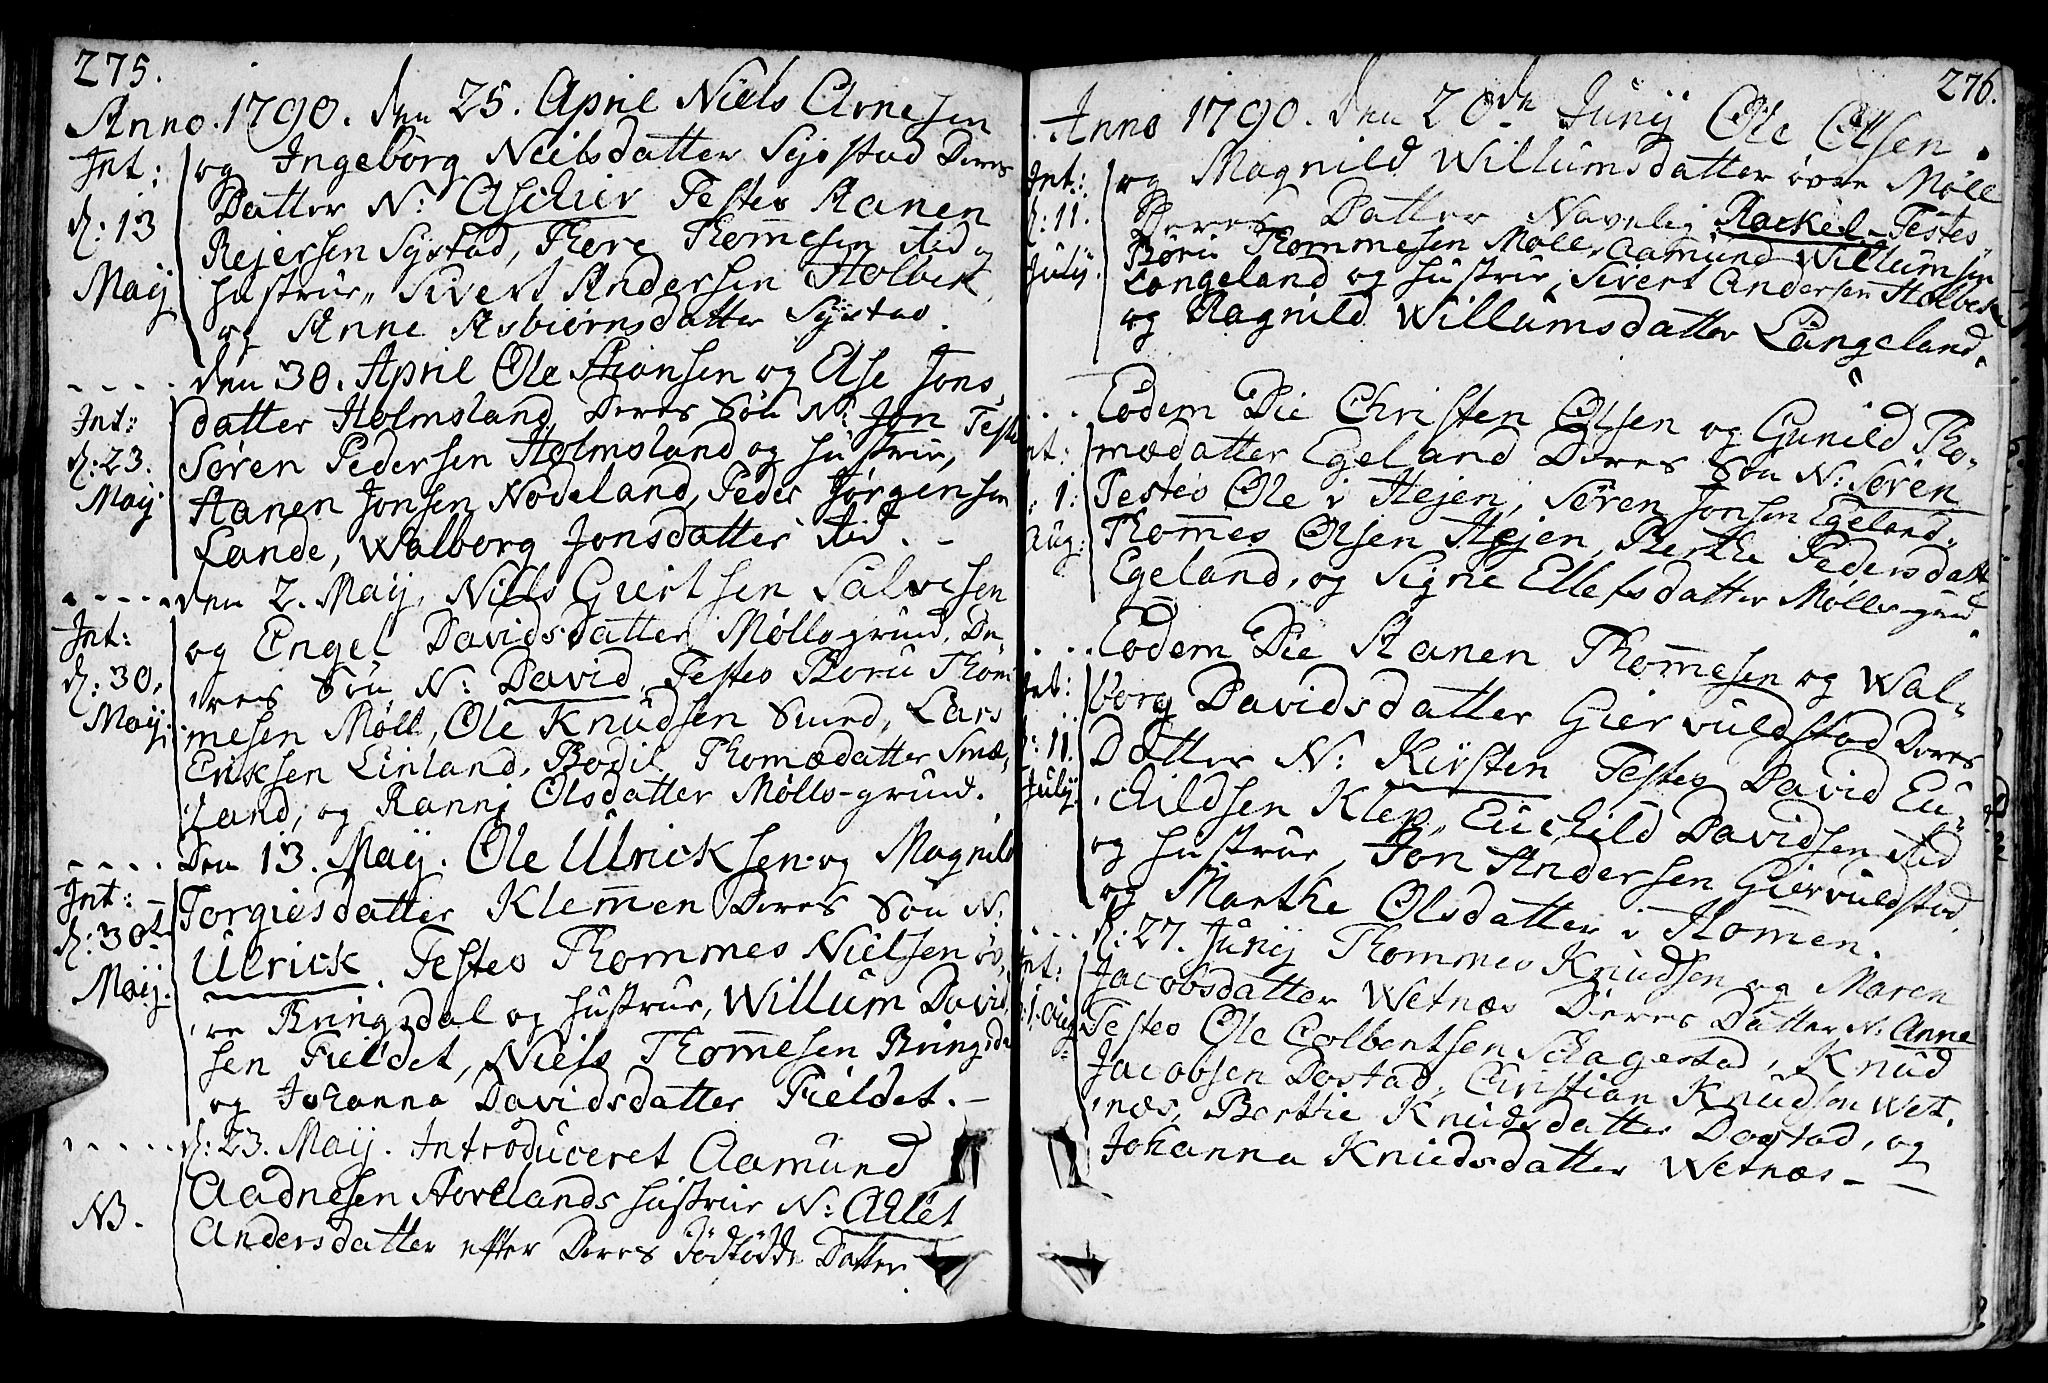 275.
Anno. 1790. den 25. April Niels Arnesen
Int: og Ingeborg Neilsdatter Systad Deres
Datter N: Aschier Testes Aanen
d: 13 Rejersen Systad, Thore Thomesen ibid og
Maij hustrue, Sivert Andersen Holbek
og Anne Asbiørnsdatter Systad.
den 30. April Ole Hansen og Else Jons
Int: datter Holmsland Deres Søn N: Jon Teste
d: 23. Søren Pedersen Holmsland og hustrue,
Maij Aanen Jonsen Nodeland, Peder Jørgensen
Lande, Walborg Jonsdatter ibid. -
den 2. Maij, Niels Giertsen Salvesen
Int: og Engel Davidsdatter Mølls grund, De
d: 30, res Søn N: David, Testes Boru Thom
Maij. mesen Møll, Ole Knudsen Lars
Eriksen Linland, Bodil Thomædatter Smæ,
land, og Ranni Olsdatter Mølls-grund.
Den 13. Maij. Ole Ulricksen og Magnild
Int: Torgiesdatter Klemmen Deres Søn N:
d: 30t Ulrick. Testes Thommes Nielsen øv,
Maij. re Bringsdal og hustrue, Willum David
sen Fieldet, Niels Thomesen Bringsda
og Johanna Davidsdatter Fieldet. -
d: 23. Maij. Introduceret Aamund
Aadnesen Hovelands hustrue N: Adlet
NB. Andersdatter efter Deres Dødfødde Datter.
276.
Anno 1790. den 20de Junij Ole Olsen
Int: og Magnild Willumsdatter øvre Møll
d: 11. Deres Datter Navnlig Rackel Testes
Julij. Boru Thommesen Møll, Aamund Willumsen
Langeland og hustrue, Sivert Andersen Holbek
og Ragnild Willumsdatter Langeland.
Eodem Die Christen Olsen og Gunild Tho-
nt: mædatter Egeland Deres Søn N: Søren
1: Testes Ole i Hejen, Søren Jonsen Egeland,
Aug: Thomes Olsen Hejen, Berthe Pedersdatt
Egeland, og Signe Ellefsdatter Mølls-grund.
Eodem Die Aanen Thomesen og Wal-
Int: borg Davidsdatter Giervuldstad Deres
11. Datter N: Kirsten Testes David Eu-
Julij childsen Klep, Euchild Davidsen ibid
og hustrue, Jon Andersen Giervuldstad
og Marthe Olsdatter i Homen.
d: 27. Junij Thommes Knudsen og Maren
nt: Jacobsdatter Wetnæs Deres Datter N: Anne
1. Aug Testes Ole Colbentsen Schagestad, Knud
Jacobsen Dostad, Christian Knudsen Wet,
næs, Berthe Knudsdatter Dostad, og
Johanna Knudsdatter Wetnæs -